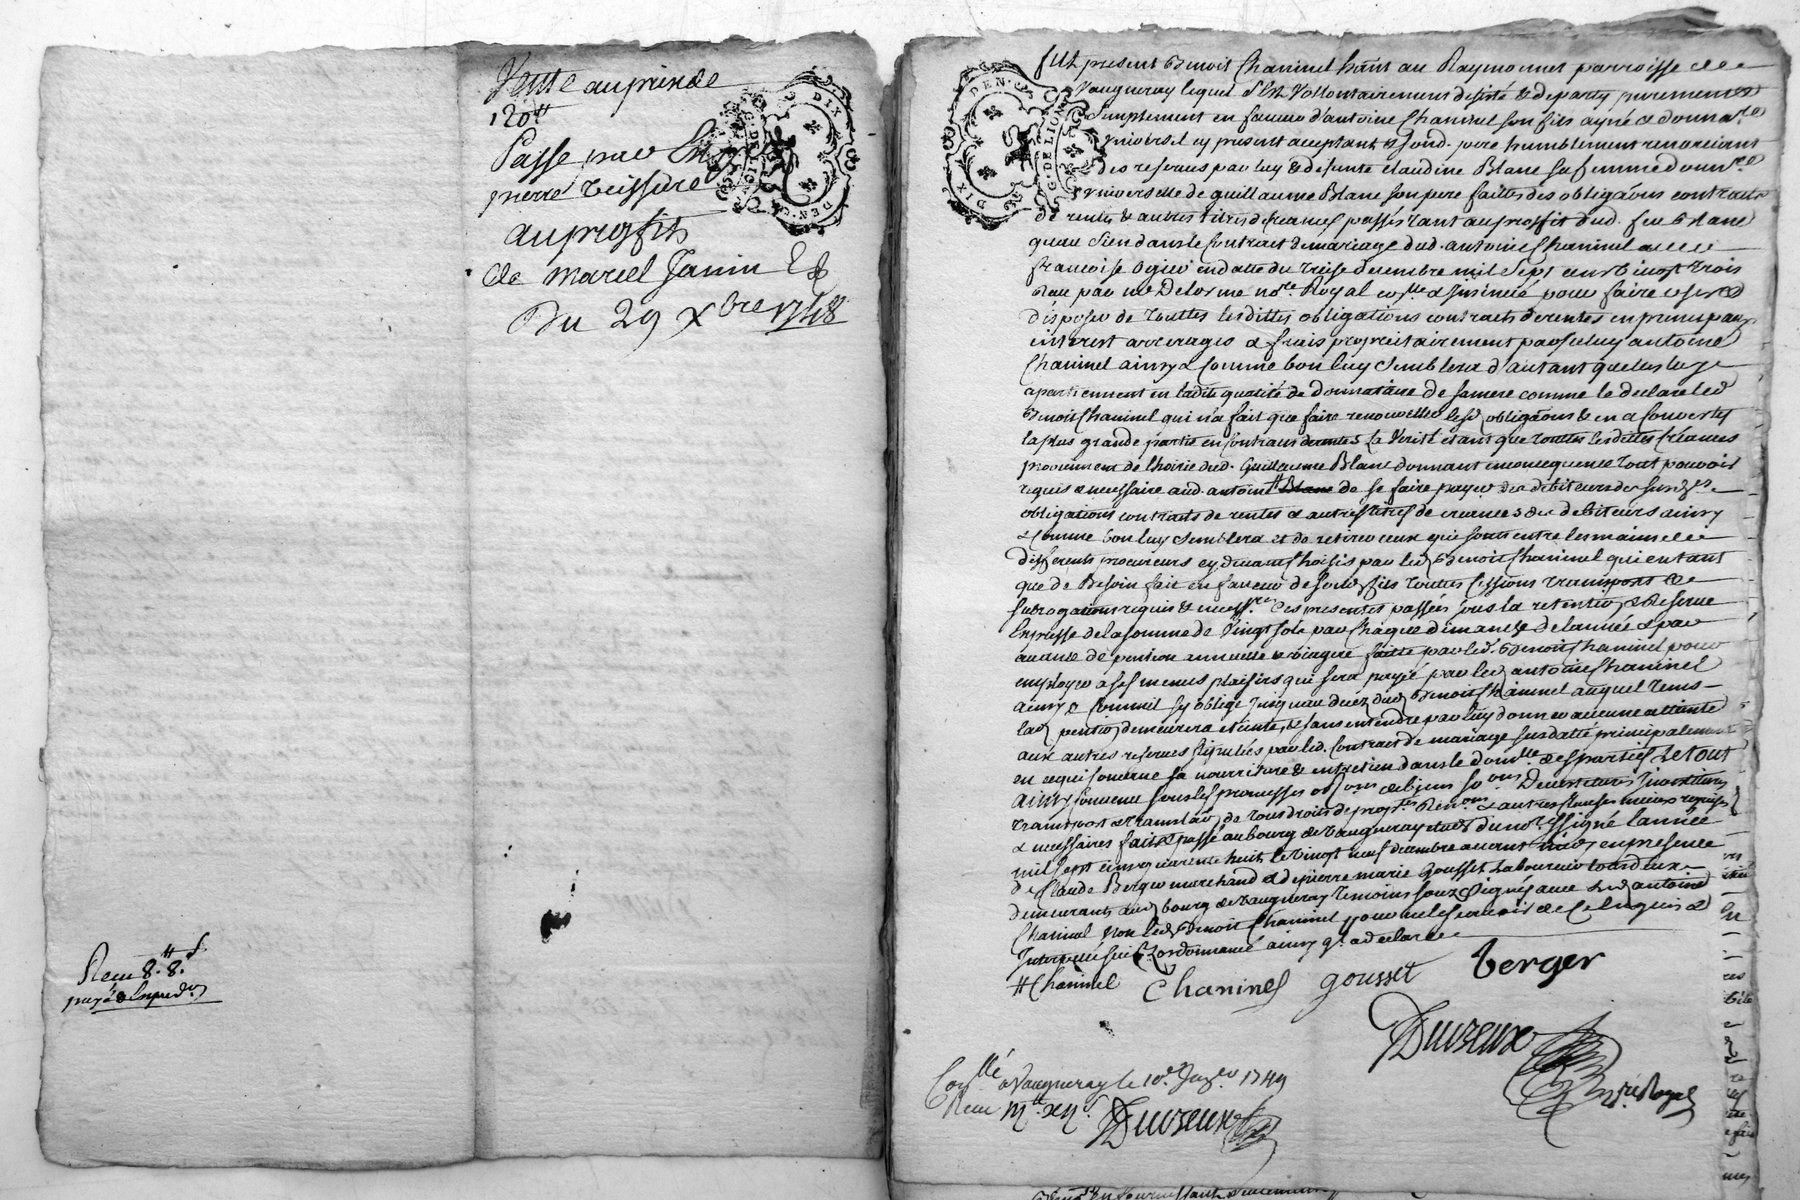 Vente au prix de
120 ᵗᵗ
Passé par
pierre teissure
au proffit
de marcel Janin
Du 29 xbre 1748
DIX DEN.
G. DE LION
Receu 8.ᵗᵗ 8.ˢ
payé
DIX DEN.
G. DE LION
fut present Benoit Chaninel hant au Raymonnet parroisse de
Vaugneray lequel s'est Vollontairement desisté & departy purement &
Simplement en faveur d'antoine Chaninel son fils ayné & donnare
universel cy present aceptant & sond. pere humblement remerciant
des reserves par luy & defunte claudine Blanc sa femme donnre
universelle de guillaume Blanc son pere faittes des obligaons contrats
de rentes & autres titres de creances passés tant au proffit dud. feu Blanc
quau sien dans le Contrat de mariage dud. antoine Chaninel avec
francoise Ogier en datte du treise decembre mil sept cent vingt trois
Receu par me Delorme nore Royal conlle & Jnsinué pour faire user &
disposer de touttes lesdittes obligations contrats de rentes en principaux
interest arrerages & frais propriétairement par seluy antoine
Chaninel ainsy & Comme bon luy Semblera d'autant quelles luy
apartiennent en ladite qualité de donnataire de sa mere comme le declare led
Benoit Chaninel qui n'a fait que faire renouveller lesd obligaons & en a Converty
la plus grande partie en Contrats de rentes La Verité etant que touttes lesdittes Créances
proviennent de lhoirie dud. Guillaume Blanc donnant en consequence tout pouvoir
requis & necessaire aud. antoine ᵗᵗ Blanc de se faire payer des debiteurs des susdes
obligations contrats de rentes & autres titres de creances des debiteurs ainsy
& comme bon luy semblera et de retirer ceux qui sont entre les mains de
differents procureurs cy devant Choisis par led Benoit Chaninel qui en tant
que de Besoin fait en faveur de sond fils touttes Cessions transport &
subrogations requis & necessre Ces presentes passées sous la retention & Reserve
Expresse de la somme de Vingt sols par Chaque dimanche de lannée & par
avance de pention annuelle & viagere faitte par led. Benoit Chaninel pour
employer à ses menus plaisirs qui sera payé par led antoine Chaninel
ainsy & Comme il sy oblige Jusquau decez dud Benoit Chaninel auquel tems
lad pention demeurera eteinte, & sans entendre par luy donner aucune attainte
aux autres reserves stipulées par led. Contrat de mariage susdatté principalement
en ce qui Concerne sa nourriture & entretien dans le domlle des parties Le tout
ainsy Convenu sous les promesses
transport & translaon de tous droits de proptés Renons & autres Clauses mieux requises
& necessaires fait & passé au bourg de Vaugneray etude du nore soussigné lannée
mil sept cent quarente huit le vingt neuf decembre avant midy en presence
de Claude Berger marchand & de pierre marie Gousset Laboureur tous deux
demeurants aud bourg de Vaugneray temoins souzsignés avec led antoine
Chaninel non led Benoit Chaninel pour ne le sçavoir de Ce enquis &
Interpellé suivt Lordonnance ainsy ql a declaré
ᵗᵗ Chaninel Chaninel gousset berger
Duvzeux
nre Royal
Conllé à Vaugneray le 10e Janer 1749
Receu
Duvzeux